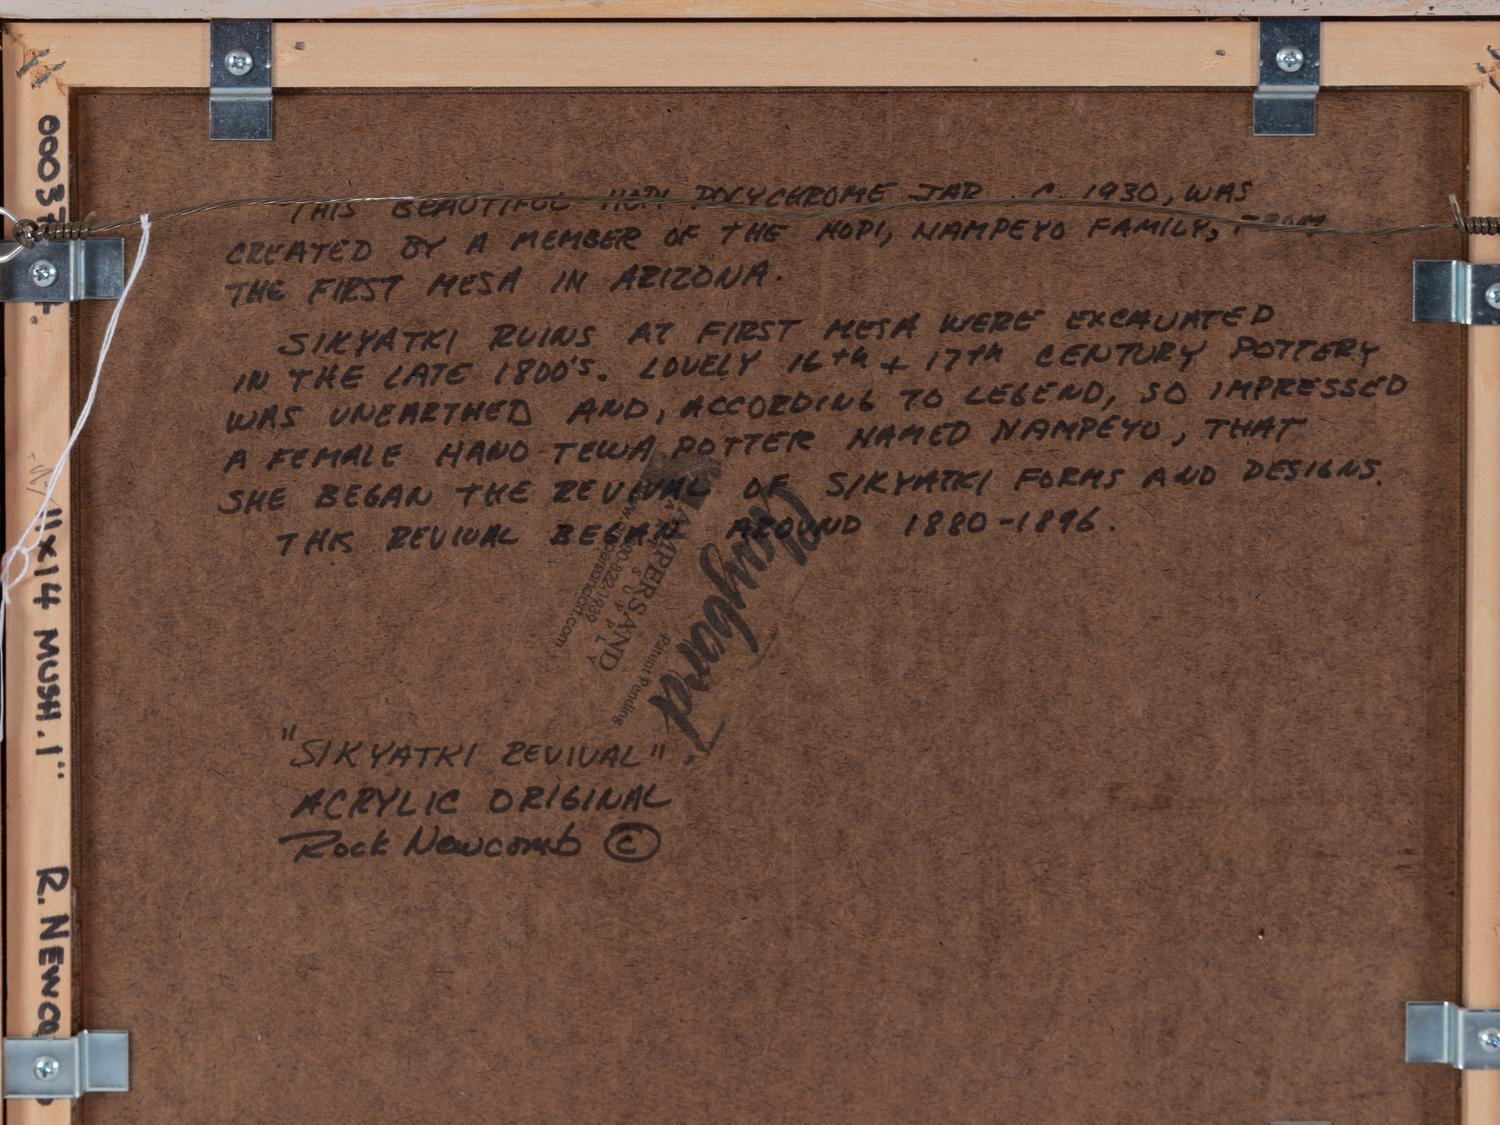 THIS BEAUTIFUL HOPI POLYCHROME JAR C. 1930, WAS
CREATED BY A MEMBER OF THE HOPI, NAMPEYO FAMILY, FROM
THE FIRST MESA IN ARIZONA.
SIKYATKI RUINS AT FIRST MESA WERE EXCAVATED
IN THE LATE 1800'S. LOVELY 16th + 17th CENTURY POTTERY
WAS UNEARTHED AND, ACCORDING TO LEGEND, SO IMPRESSED
A FEMALE HANO TEWA POTTER NAMED NAMPEYO, THAT
SHE BEGAN THE REVIVAL OF SIKYATKI FORMS AND DESIGNS.
THIS REVIVAL BEGAN AROUND 1880-1896.
Claybord
Patent Pending
AMPERSAND
SUPPLY
800-822-1939
www.ampersandart.com
"SIKYATKI REVIVAL"
ACRYLIC ORIGINAL
Rock Newcomb ©
11x14 MUSH.1"
R. NEWCO